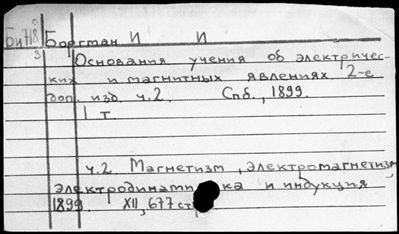 Би 718
Боргман И И
Основания учения об электричес-
ких и магнитных явлениях 2-е
доп. изд. ч.2. Спб., 1899.
1 т.
ч.2. Магнетизм, электромагнетизм,
электродинами ка и индукция
1899. XII, 677 стр